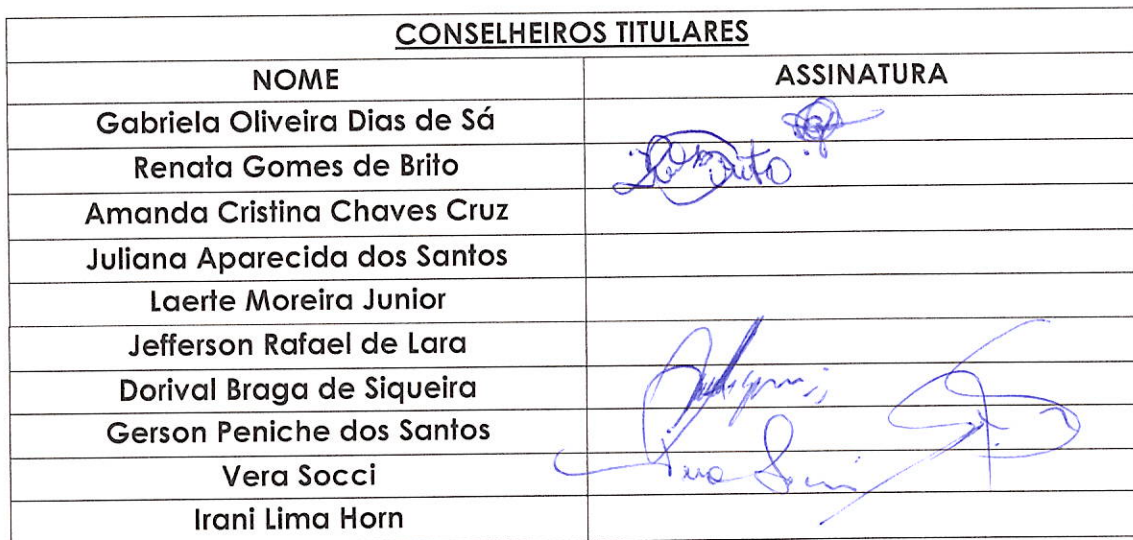 CONSELHEIROS TITULARES
NOME ASSINATURA
Gabriela Oliveira Dias de Sá
Renata Gomes de Brito Brito
Amanda Cristina Chaves Cruz
Juliana Aparecida dos Santos
Laerte Moreira Junior
Jefferson Rafael de Lara
Dorival Braga de Siqueira
Gerson Peniche dos Santos
Vera Socci Vera Socci
Irani Lima Horn